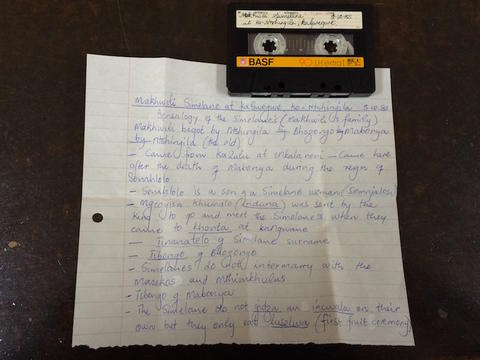 Makhwidi Simelane 8-10-85
at ko-Ntshingila, Kalwegwe
BASF 90
Makhwidi Simelane at Kalwegwe, ko-Ntshingila 8-10-85
Genealogy of the Simelane's (Makhwidi's family)
Makhwidi begot by Ntshingila by Bhogongo by Mabonya
by Ntshingila (the old)
- Came from KaZulu at Nkalaneni - Came here
after the death of Mabonya during the reign of
Somhlolo
- Somhlolo is a son of a Simelane woman (Somnjalose)
- Mgenyisa Khumalo (Induna) was sent by the
King to go and meet the Simelanes when they
came to khonta at kangwane
- Tinanatelo of Simelane surname
- Tibongo of Bhogongo
- Simelanes do not intermarry with the
Masekos and
- Tibongo of Mabonya
- The Simelane do not an incwala on their
own but they only eat luselwa (first fruit ceremony)